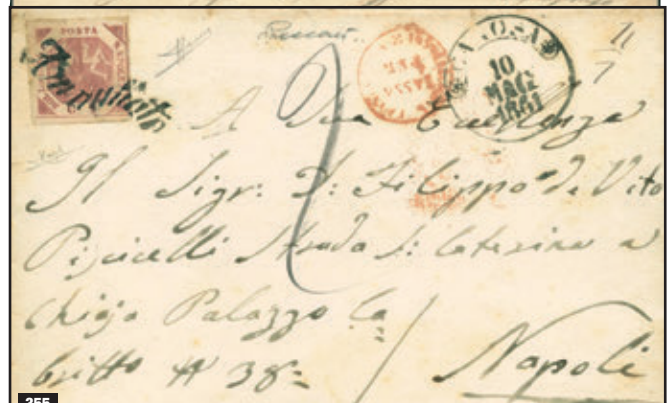 POSTA
Annullato
CANOSA
10
MAG
1861
11
7
2
A Sua Eccellenza
Il Sigr: D: Filippo de Vito
Piscicelli Strada S: Caterina a
Chiaja Palazzo Ca
britto # 38=
Napoli
255